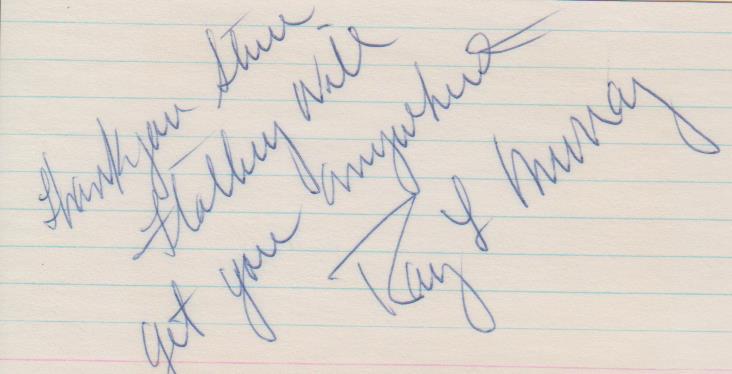 Thankyou Steve
Flattery Will
get you anywhere
Ray L Murray